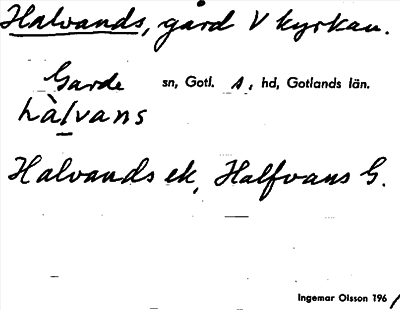 Halvands, gård V kyrkan.
Garde sn, Gotl. s. hd, Gotlands län.
hàlvans
Halvands ek, Halfvans G.
Ingemar Olsson 1961